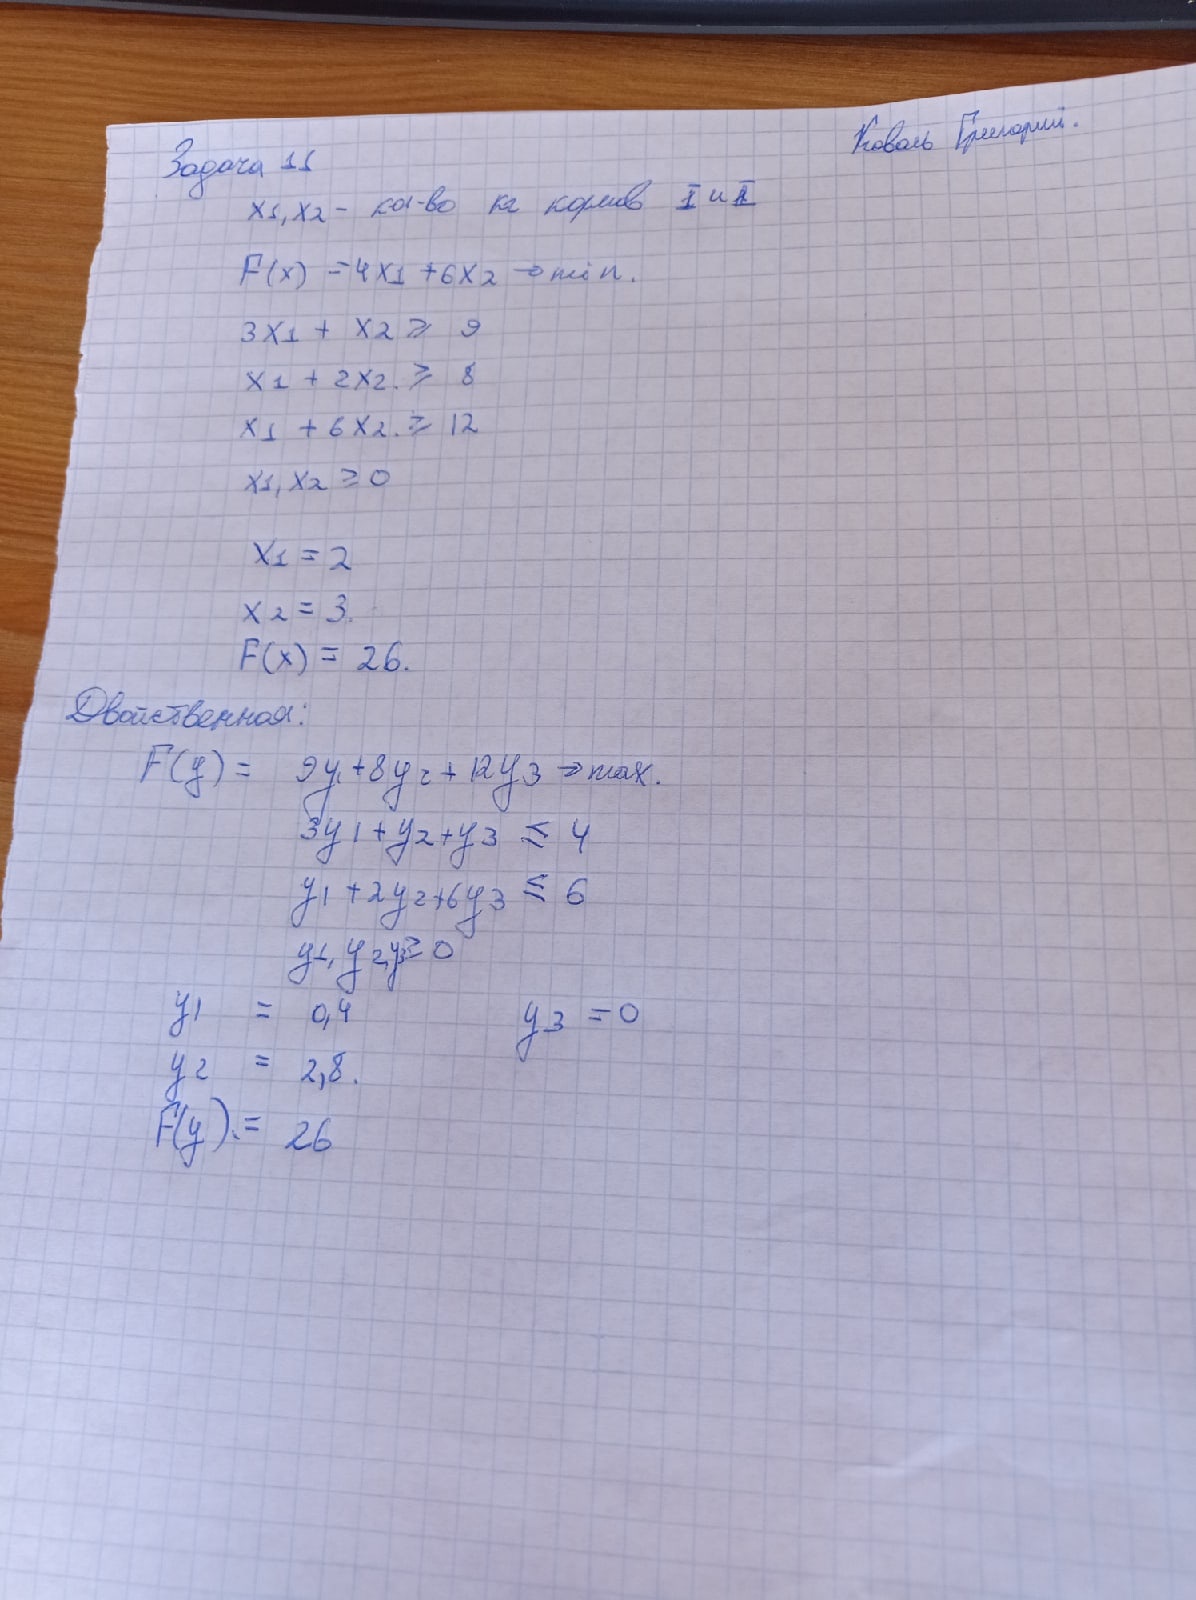 Коваль Григорий.
Задача 11
x1, x2 - кол-во кг кормов I и II
F(x) = 4x1 + 6x2 → min.
3x1 + x2 ≥ 9
x1 + 2x2. ≥ 8
x1 + 6x2. ≥ 12
x1, x2 ≥ 0
x1 = 2
x2 = 3.
F(x) = 26.
Двойственная:
F(y) = 9y1 + 8y2 + 12y3 → max.
3y1 + y2 + y3 ≤ 4
y1 + 2y2 + 6y3 ≤ 6
y1, y2, y3 ≥ 0
y1 = 0,4 y3 = 0
y2 = 2,8.
F(y). = 26